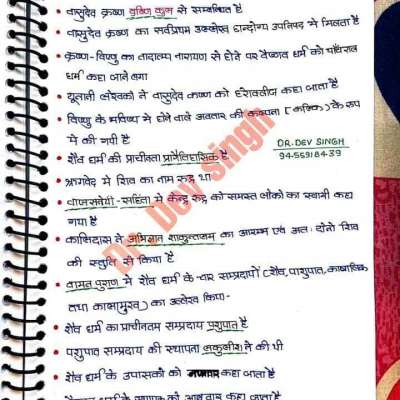 वासुदेव कृष्ण वृष्णि कुल से सम्बंधित है
वासुदेव कृष्ण का सर्वप्रथम उल्लेख छान्दोग्य उपनिषद में मिलता है
कृष्ण-विष्णु का तादात्म्य नारायण से होने पर वैष्णव धर्म को पाँचरात्र
धर्म कहा जाने लगा
यूनानी लेखकों ने वासुदेव कृष्ण को हेराक्लीज कहा जाता है
विष्णु के भविष्य में होने वाले अवतार की कल्पना (कल्कि) के रूप
में की गयी है
DR. DEV SINGH
9456918439
शैव धर्म की प्राचीनता प्रागैतिहासिक है
ऋग्वेद में शिव का नाम रुद्र था
वाजसनेयी-संहिता में रुद्र को समस्त लोकों का स्वामी कहा
गया है
कालिदास ने अभिज्ञान शाकुन्तलम का आरम्भ एवं अन्त दोनो शिव
की स्तुति से किया है
वामन पुराण में शैव धर्म के चार सम्प्रदायों (शैव, पाशुपात, कापालिक
तथा कालामुख) का उल्लेख किया-
शैव धर्म का प्राचीनतम सम्प्रदाय पशुपात है
पशुपात सम्प्रदाय की स्थापना लकुलीश ने की थी
शैव धर्म के उपासकों को नयनार कहा जाता है
धर्म के उपासक को आलवार कहा जाता है
Dr. Dev Singh